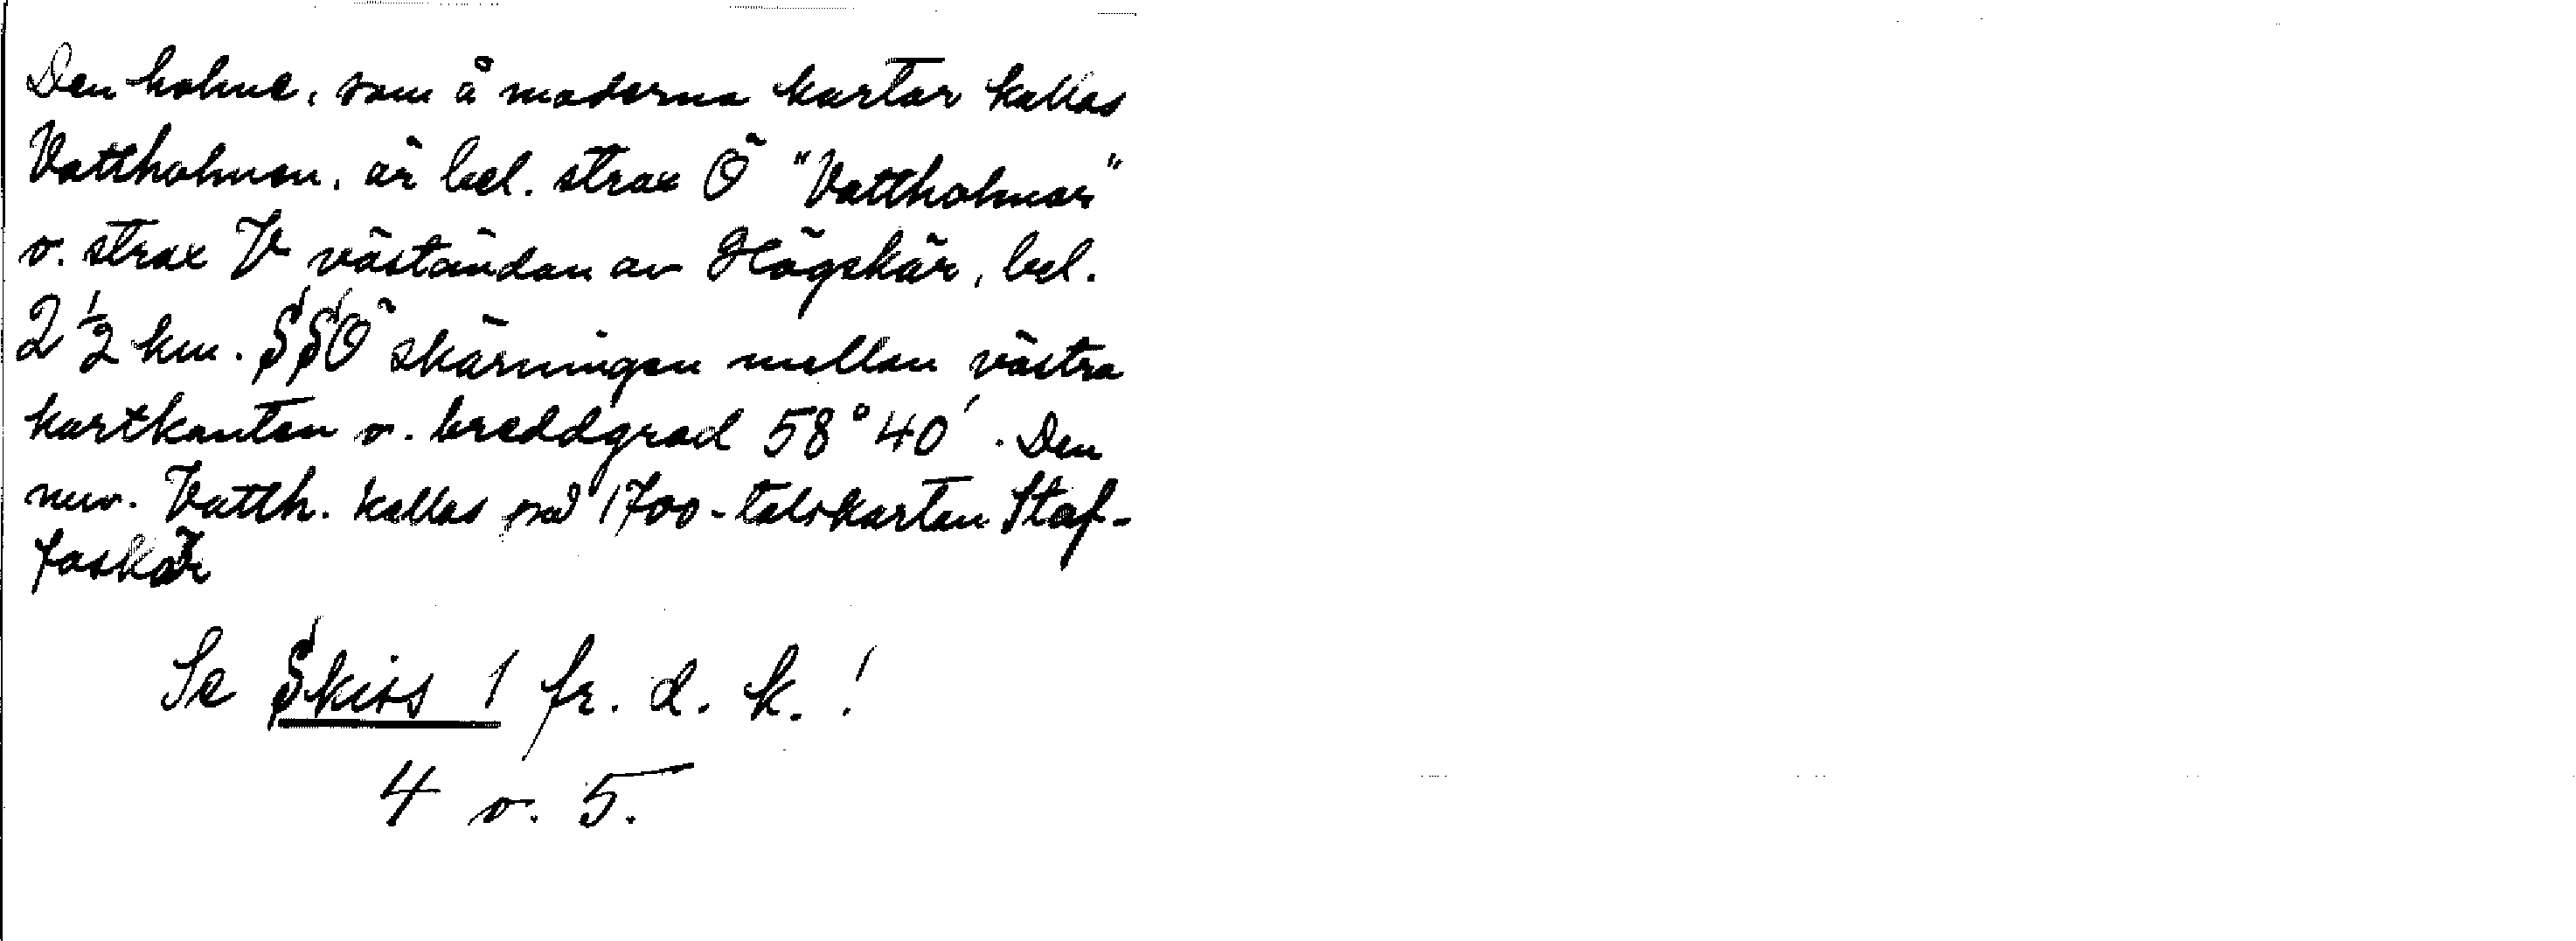 Den holme, som å moderna kartor kallas
Vattholmen, är bel. strax Ö "Vattholmar"
o. strax V väständan av Högskär, bel.
2 1/2 km. SSÖ skärningen mellan västra
kartkanten o. breddgrad 58° 40′. Den
nuv. Vatth. kallas på 1700-talskartan Staf-
faskär
Se Skiss 1 fr. d. k.!
4 o. 5.